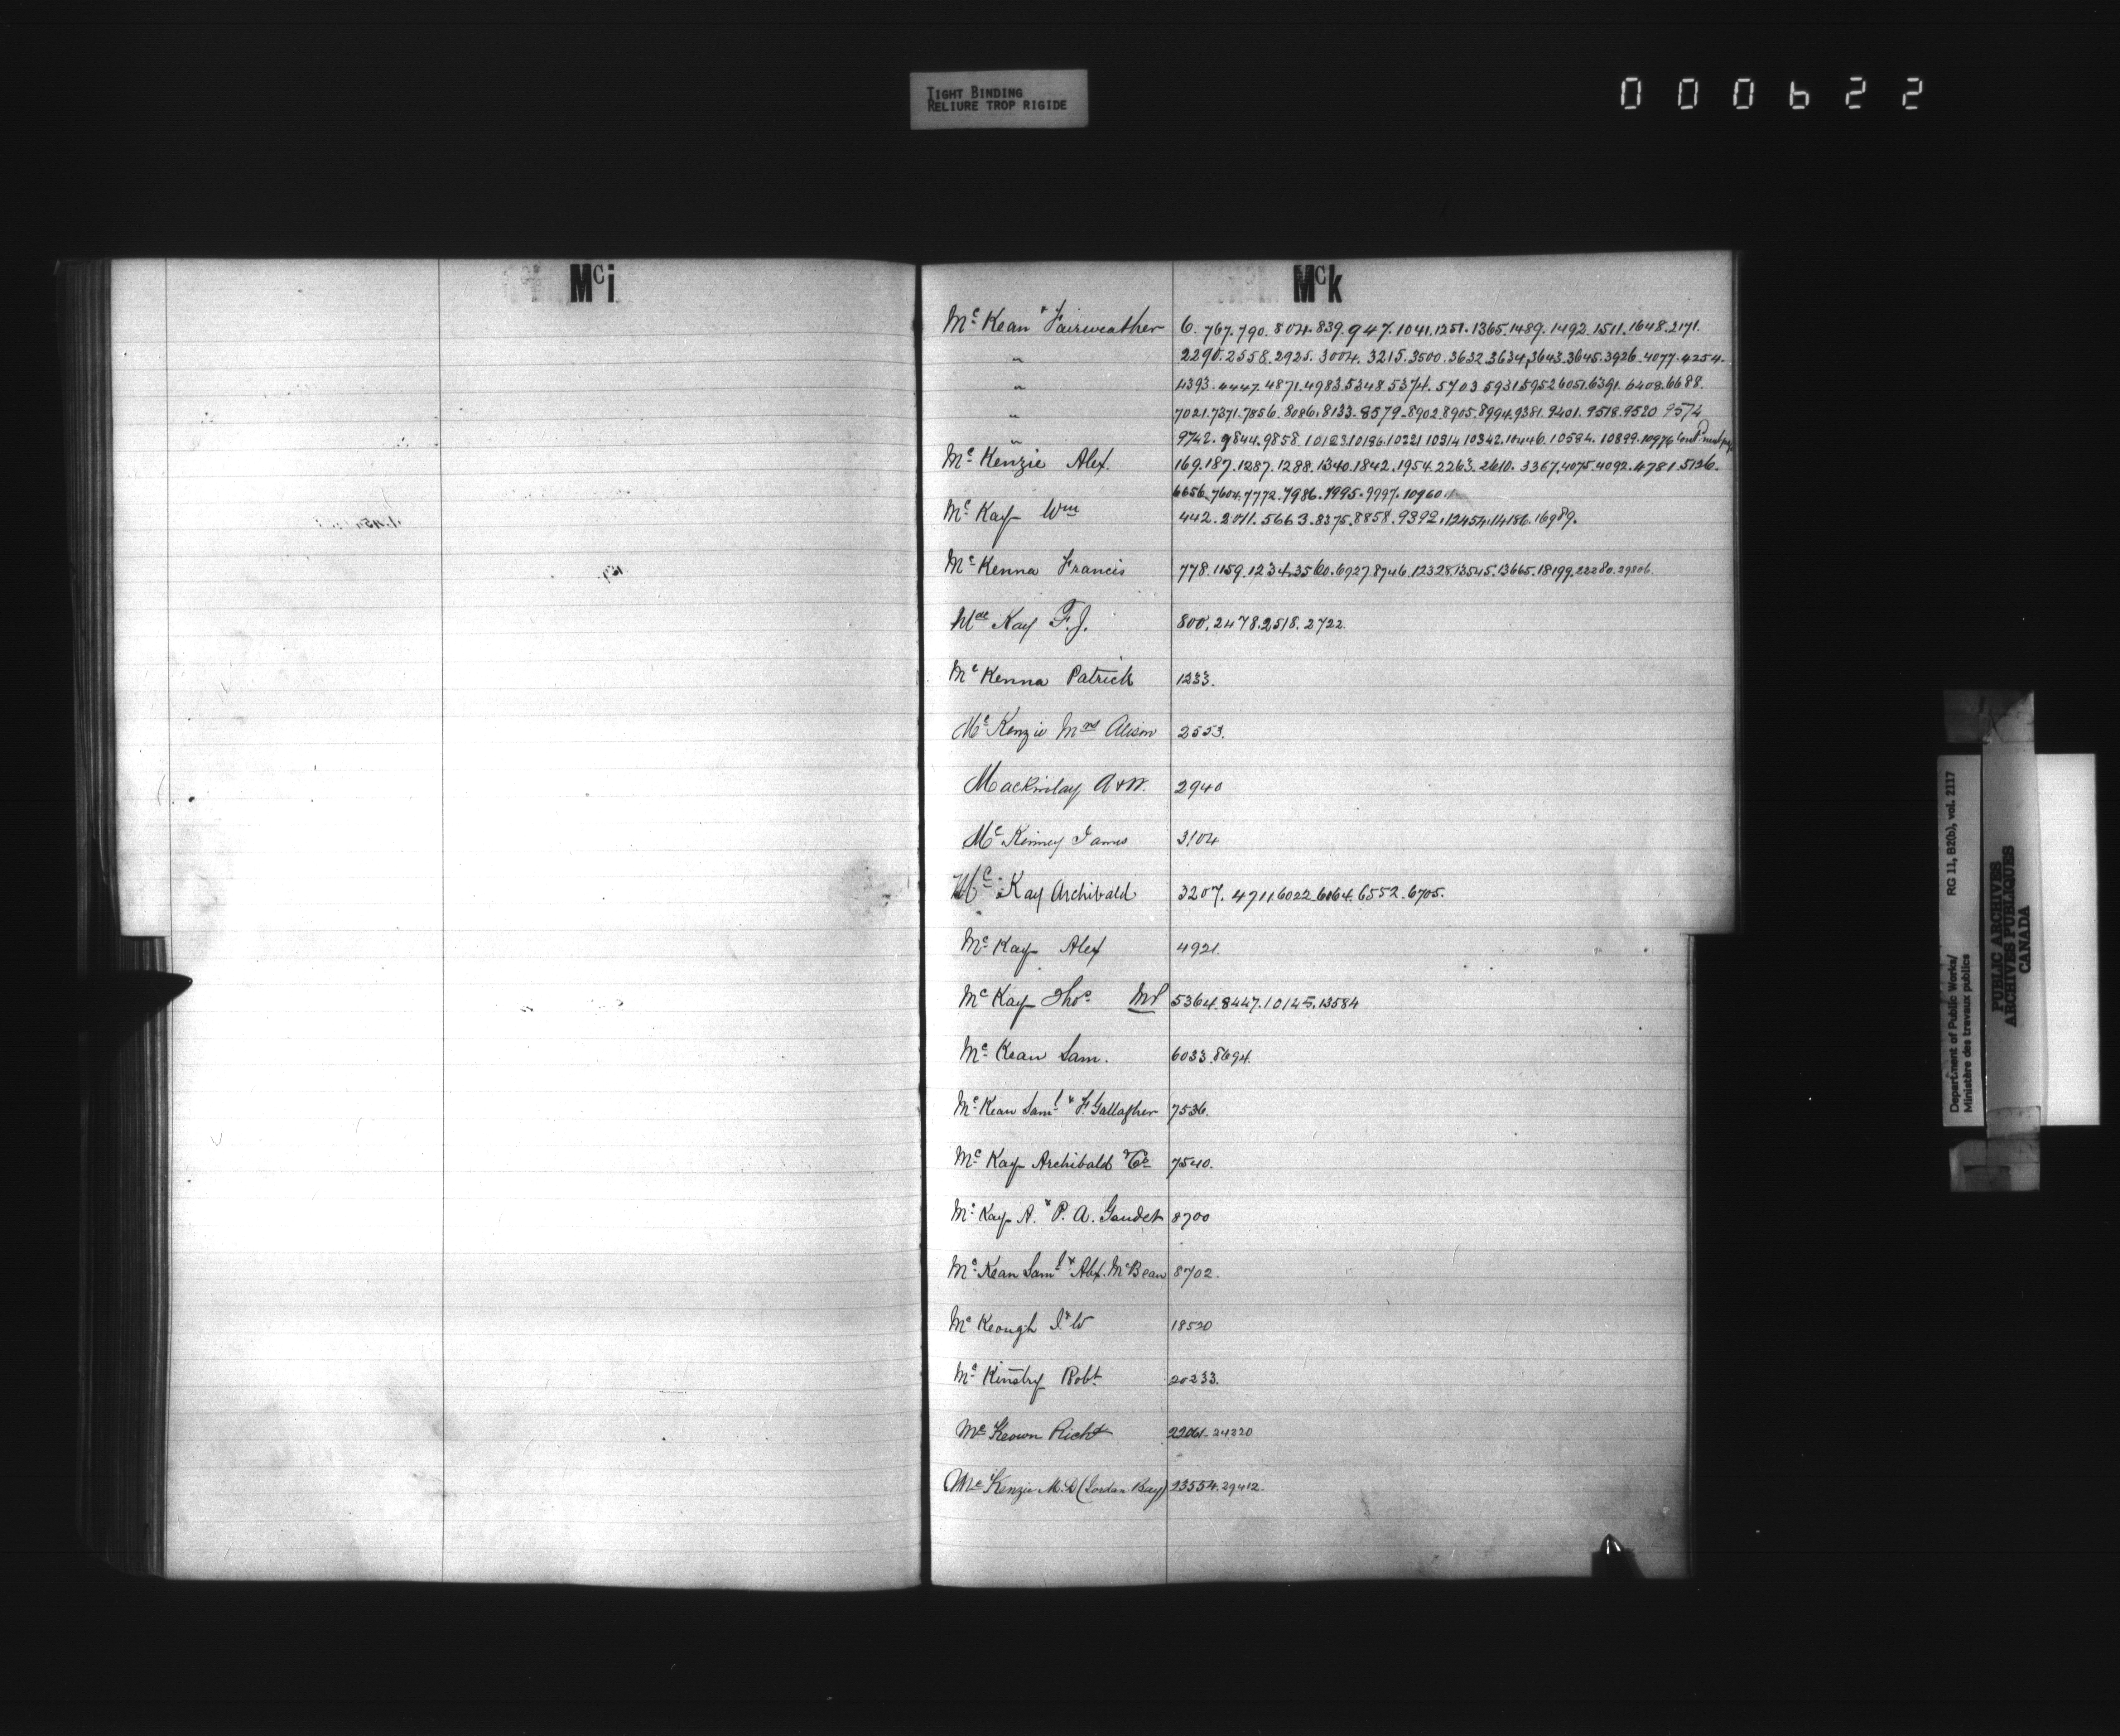 TIGHT BINDING
RELIURE TROP RIGIDE
000622
Mci
Mck
Mc Kean & Fairweather 6. 767. 790. 804. 839. 947. 1041. 1251. 1365. 1489. 1492. 1511. 1648. 2171.
" 2290. 2558. 2925. 3004. 3215. 3500. 3632. 3634. 3643. 3645. 3926. 4077. 4254.
" 4393. 4447. 4871. 4983. 5348. 5374. 5703. 5931. 5952. 6051. 6391. 6408. 6688.
" 7021. 7371. 7856. 8086. 8133. 8579. 8902. 8905. 8994. 9381. 9401. 9518. 9520. 9574
" 9742. 9844. 9858. 10123. 10196. 10221. 10314. 10342. 10446. 10594. 10899. 10976
Mc Kenzie Alex. 169. 187. 1287. 1288. 1340. 1842. 1954. 2263. 2610. 3367. 4075. 4092. 4781. 5126.
6656. 7604. 7772. 7986. 7995. 9997. 10960
Mc Kay Wm 442. 2011. 5663. 8375. 8858. 9392. 12454. 14186. 16989.
Mc Kenna Francis 778. 1159. 1234. 3560. 6927. 8746. 12328. 13545. 13665. 18199. 22280. 29806.
Mac Kay F. J. 800. 2478. 2518. 2722.
Mc Kenna Patrick 1233.
Mc Kenzie Mrs Alison 2553.
Mackinlay A & W. 2940
Mc Kinney James 3104
Mc Kay Archibald 3207. 4711. 6022. 6164. 6552. 6705.
Mc Kay Alex 4921.
Mc Kay Thos. MP 5364. 8447. 10145. 13584
Mc Kean Sam. 6033. 8694.
Mc Kean Saml & F. Gallagher 7536.
Mc Kay Archibald & Co 7540.
Mc Kay A. & P. A. Gaudet 8700
Mc Kean Saml & Alex. McBean 8702.
Mc Keough J & W 18520
Mc Kinstry Robt. 20233.
Mc Keown Richd 22061. 24220
Mc Kenzie M. D (Jordan Bay) 23554. 29412.
Department of Public Works/ RG 11, B2(b), vol. 2117
Ministère des travaux publics
PUBLIC ARCHIVES
ARCHIVES PUBLIQUES
CANADA